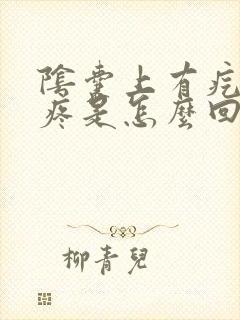 陰囊上有疙
疼是怎麼回
柳青兒